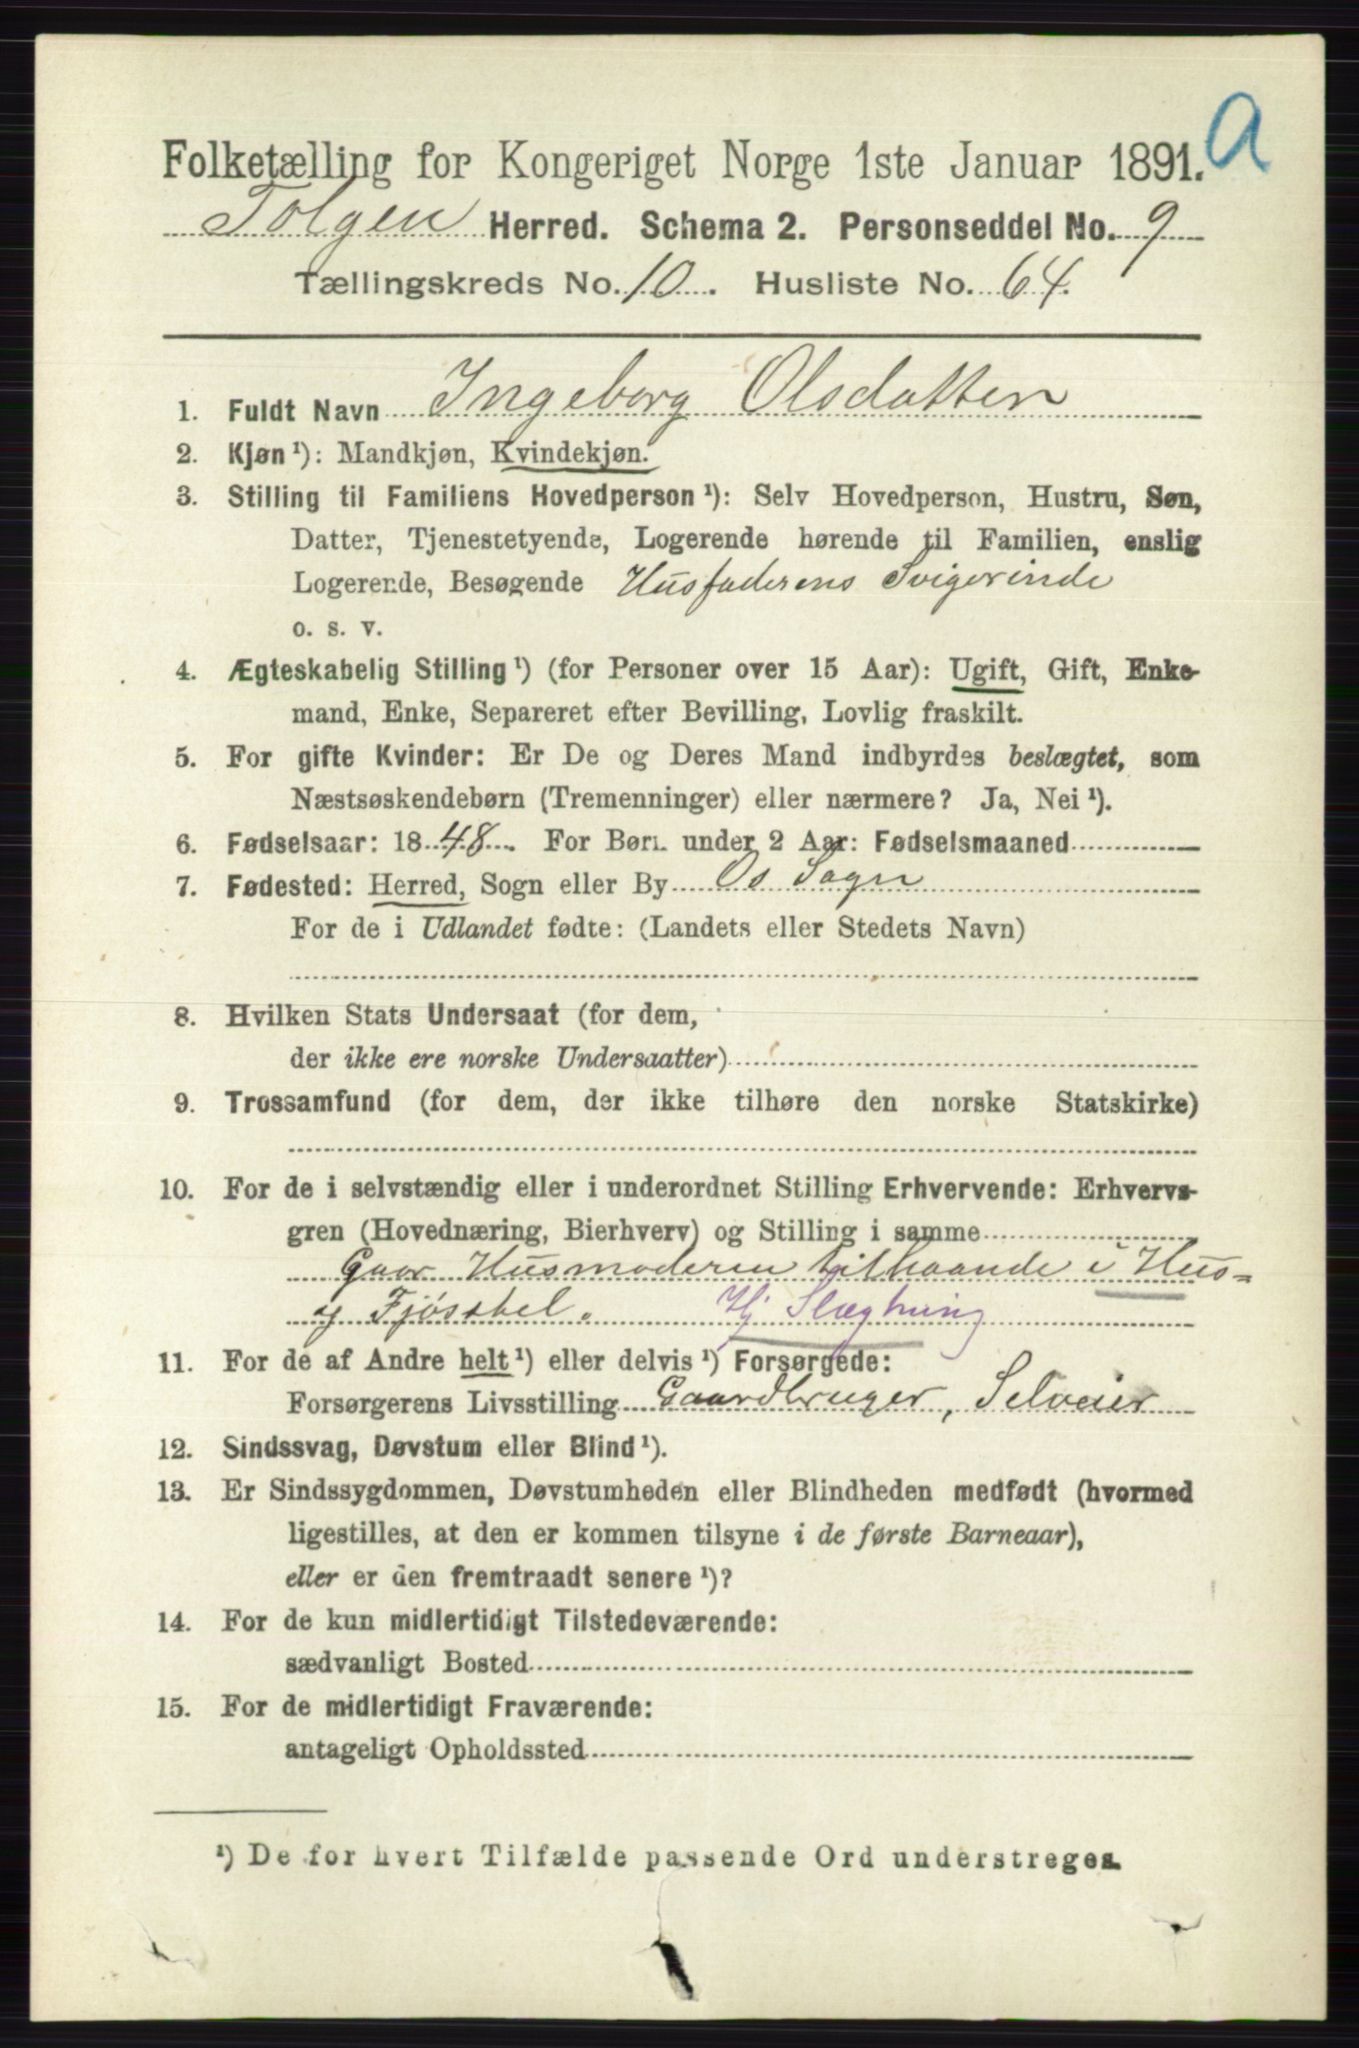 a
Folketælling for Kongeriget Norge 1ste Januar 1891.
Tolgen Herred. Schema 2. Personseddel No. 9
Tællingskreds No. 10. Husliste No. 64.
1. Fuldt Navn Ingeborg Olsdatter
2. Kjøn ¹): Mandkjøn, Kvindekjøn.
3. Stilling til Familiens Hovedperson ¹): Selv Hovedperson, Hustru, Søn,
Datter, Tjenestetyende, Logerende hørende til Familien, enslig
Logerende, Besøgende Husfaderens Svigerinde
o. s. v.
4. Ægteskabelig Stilling ¹) (for Personer over 15 Aar): Ugift, Gift, Enke-
mand, Enke, Separeret efter Bevilling, Lovlig fraskilt.
5. For gifte Kvinder: Er De og Deres Mand indbyrdes beslægtet, som
Næstsøskendebørn (Tremenninger) eller nærmere? Ja, Nei ¹).
6. Fødselsaar: 1848. For Børn under 2 Aar: Fødselsmaaned
7. Fødested: Herred, Sogn eller By Os Sogn
For de i Udlandet fødte: (Landets eller Stedets Navn)
8. Hvilken Stats Undersaat (for dem,
der ikke ere norske Undersaatter)
9. Trossamfund (for dem, der ikke tilhøre den norske Statskirke)
10. For de i selvstændig eller i underordnet Stilling Erhvervende: Erhvervs-
gren (Hovednæring, Bierhverv) og Stilling i samme
Gaar Husmoderen tilhaande i Hus=
og Fjøsstel. Hj Slægtning
11. For de af Andre helt ¹) eller delvis ¹) Forsørgede:
Forsørgerens Livsstilling Gaardbruger, Selveier
12. Sindssvag, Døvstum eller Blind ¹).
13. Er Sindssygdommen, Døvstumheden eller Blindheden medfødt (hvormed
ligestilles, at den er kommen tilsyne i de første Barneaar),
eller er den fremtraadt senere ¹)?
14. For de kun midlertidigt Tilstedeværende:
sædvanligt Bosted
15. For de midlertidigt Fraværende:
antageligt Opholdssted
¹) De for hvert Tilfælde passende Ord understreges.